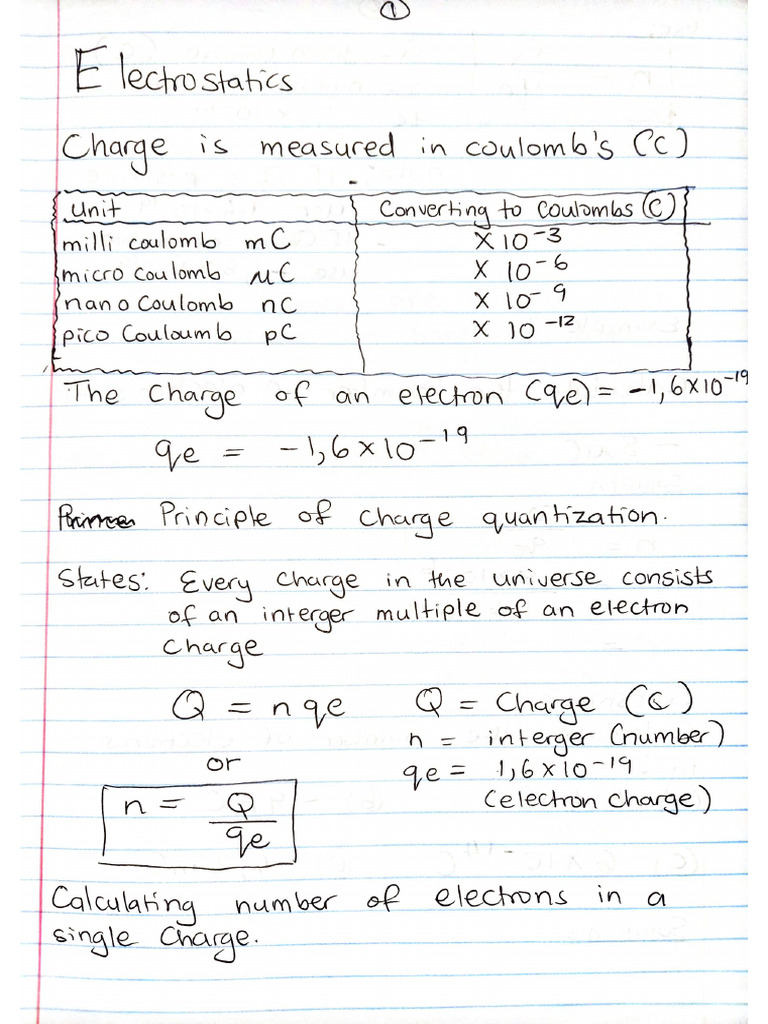 1
Electrostatics
Charge is measured in coulomb's (C)
Unit Converting to Coulombs (C)
milli coulomb mC × 10⁻³
micro coulomb µC × 10⁻⁶
nano Coulomb nC × 10⁻⁹
pico Couloumb pC × 10⁻¹²
The Charge of an electron (qe) = -1,6×10⁻¹⁹
qe = -1,6×10⁻¹⁹
Principle of charge quantization.
States: Every charge in the universe consists
of an interger multiple of an electron
charge
Q = nqe Q = Charge (C)
n = interger (number)
or
qe = 1,6×10⁻¹⁹
(electron charge)
n = Q/qe
Calculating number of electrons in a
single Charge.